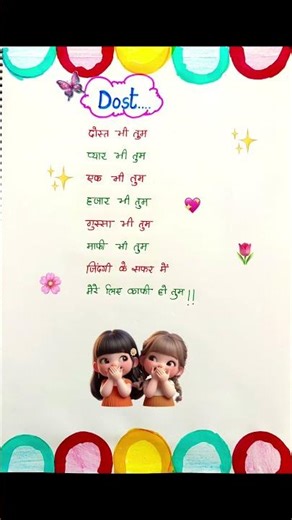 Dost....
दोस्त भी तुम
प्यार भी तुम
एक भी तुम
हजार भी तुम
गुस्सा भी तुम
माफी भी तुम
जिंदगी के सफर में
मेरे लिए काफी हो तुम!!